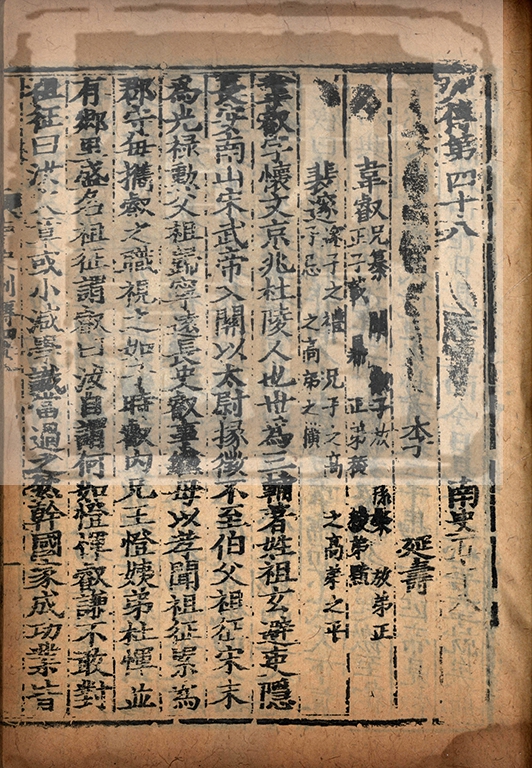 列傳第四十八 南史五十八
李 延壽
韋叡 兄纂 闡 叡子放 孫粲 放弟正
正子載 正弟稜 稜弟黯
裴邃 邃子之禮 兄子之高 之高弟之平
之平子忌 之高弟之橫
韋叡字懷文京兆杜陵人也世為三輔著姓祖玄避吏隱
長安南山宋武帝入關以太尉掾徵不至伯父祖征宋末
為光祿勳父祖歸寧遠長史叡事繼母以孝聞祖征累為
郡守每攜叡之職視之如子時叡內兄王憕姨弟杜惲並
有鄉里盛名祖征謂叡曰汝自謂何如憕惲叡謙不敢對
祖征曰汝文章或小減學識當過之然幹國家成功業皆